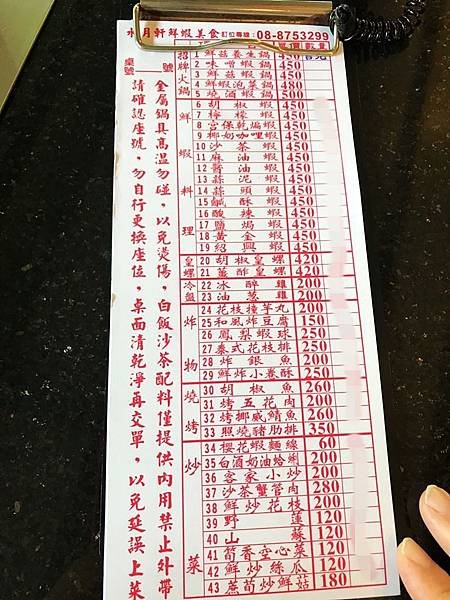 水月軒鮮蝦美食 訂位專線：08-8753299
桌號
單價 數量
招牌火鍋
1 鮮菇養生鍋 450
2 味噌蝦鍋 450
3 鮮菇蝦鍋 450
4 鮮蝦泡菜鍋 480
5 燒酒蝦鍋 500
鮮蝦料理
6 胡椒蝦 450
7 檸檬蝦 450
8 宮保乾煸蝦 450
9 椰奶咖哩蝦 450
10 沙茶蝦 450
11 麻油蝦 450
12 醬油蝦 450
13 蒜泥蝦 450
14 蒜頭蝦 450
15 鹹酥蝦 450
16 酸辣蝦 450
17 鹽焗蝦 450
18 黃金蝦 450
19 紹興蝦 450
皇螺
20 胡椒皇螺 420
21 薑酢皇螺 420
冷盤
22 冰醉雞 200
23 油蔥雞 200
炸物
24 花枝撞芋丸 200
25 和風炸豆腐 150
26 鳳梨蝦球 250
27 泰式花枝排 250
28 炸銀魚 200
29 鮮炸小卷酥 250
燒烤
30 胡椒魚 260
31 烤五花肉 200
32 烤挪威鯖魚 260
33 照燒豬肋排 350
炒菜
34 櫻花蝦麵線 60
35 白酒奶油蛤蜊 200
36 客家小炒 200
37 沙茶蟹管肉 280
38 鮮炒花枝 200
39 野蓮 120
40 山蘇 120
41 筍香空心菜 120
42 鮮炒絲瓜 120
43 蔗筍炒鮮菇 180
金屬鍋具高溫勿碰，以免燙傷，白飯沙茶配料僅提供內用禁止外帶
請確認座號，勿自行更換座位，桌面清乾淨再交單，以免延誤上菜